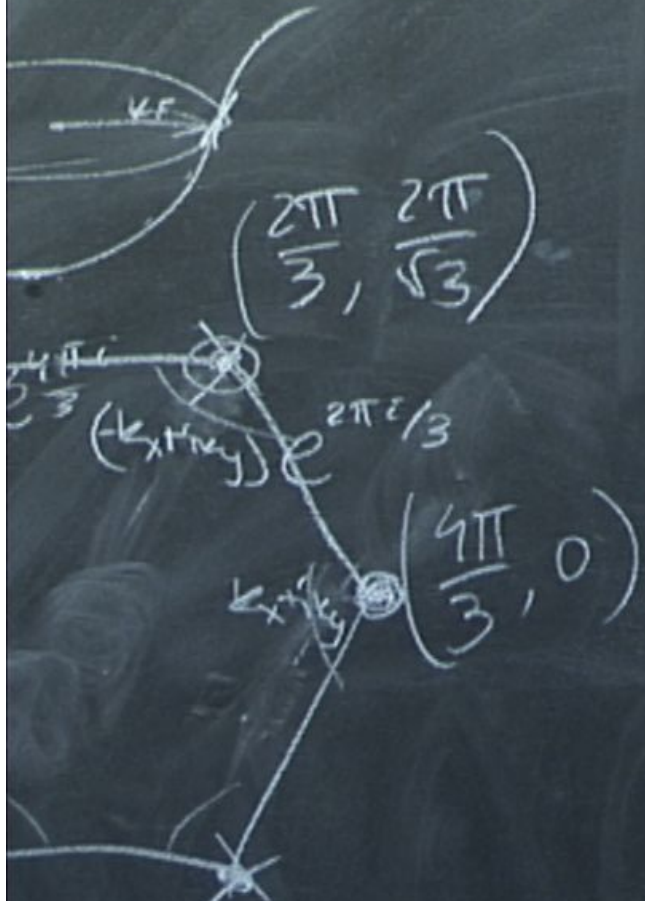 KF
(2π/3, 2π/√3)
e^{4πi/3}
(-kₓ+iky) e^{2πi/3}
kₓ+iky (4π/3, 0)